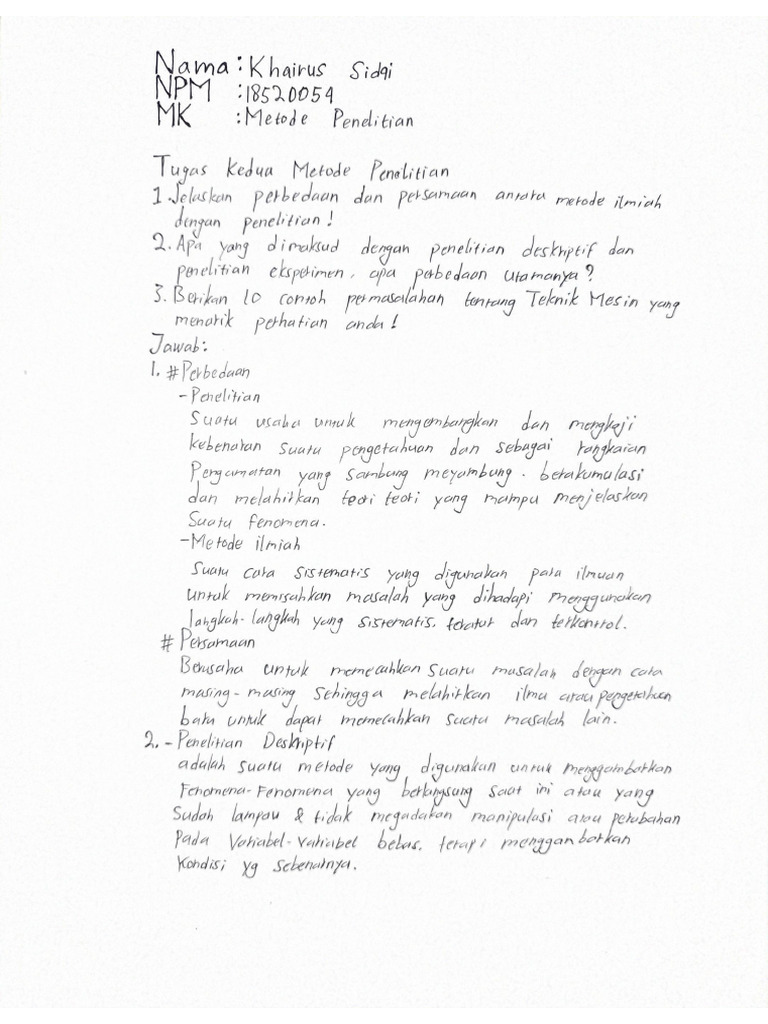 Nama : Khairus Sidqi
NPM : 18520054
MK : Metode Penelitian
Tugas Kedua Metode Penelitian
1. Jelaskan perbedaan dan persamaan antara metode ilmiah
dengan penelitian!
2. Apa yang dimaksud dengan penelitian deskriptif dan
penelitian eksperimen, apa perbedaan utamanya?
3. Berikan 10 contoh permasalahan tentang Teknik Mesin yang
menarik perhatian anda!
Jawab:
1. # Perbedaan
- Penelitian
Suatu usaha untuk mengembangkan dan mengkaji
kebenaran suatu pengetahuan dan sebagai rangkaian
Pergamatan yang sambung meyambung. berakumulasi
dan melahirkan teori teori yang mampu menjelaskan
Suatu fenomena.
- Metode ilmiah
Suatu cara sistematis yang digunakan para ilmuan
untuk memisahkan masalah yang dihadapi menggunakan
langkah-langkah yang sistematis, teratur dan terkontrol.
# Persamaan
Berusaha untuk memecahkan suatu masalah dengan cara
masing-masing Sehingga melahirkan ilmu atau pengetahuan
baru untuk dapat memecahkan suatu masalah lain.
2. - Penelitian Deskriptif
adalah suatu metode yang digunakan untuk menggambarkan
Fenomena-Fenomena yang berlangsung saat ini atau yang
Sudah lampau & tidak megadakan manipulasi atau perubahan
Pada Variabel-variabel bebas, tetapi menggambarkan
Kondisi yg Sebenarnya.